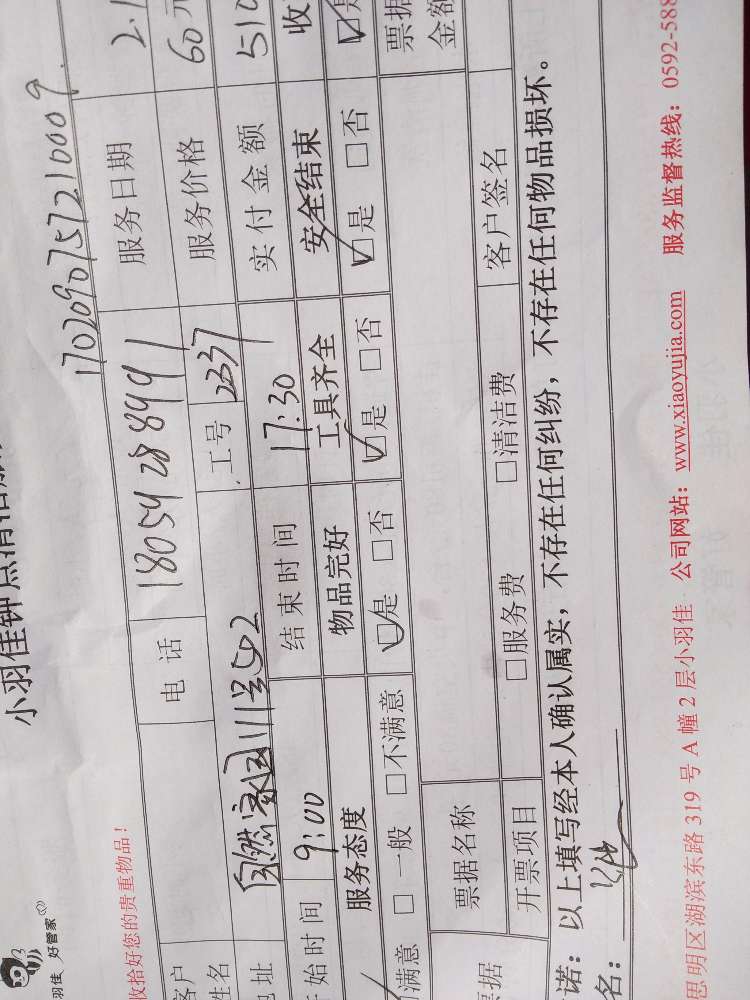 羽佳 好管家
小羽佳钟点清洁服
收拾好您的贵重物品！
1702090757210009
客户 电话 18054288991 服务日期 2.1
姓名 工号 2337 服务价格 60元
地址 自然家园111号502 实付金额 510
开始时间 9:00 结束时间 17:30 安全结束 收
服务态度 物品完好 工具齐全 ☑是 □否
满意 □一般 □不满意 ☑是 □否 ☑是 □否 ☑是
票据名称 票据金额
票据 开票项目 □服务费 □清洁费 客户签名
诺：以上填写经本人确认属实，不存在任何纠纷，不存在任何物品损坏。
名：
思明区湖滨东路 319 号 A 幢 2 层小羽佳 公司网站：www.xiaoyujia.com 服务监督热线：0592-588